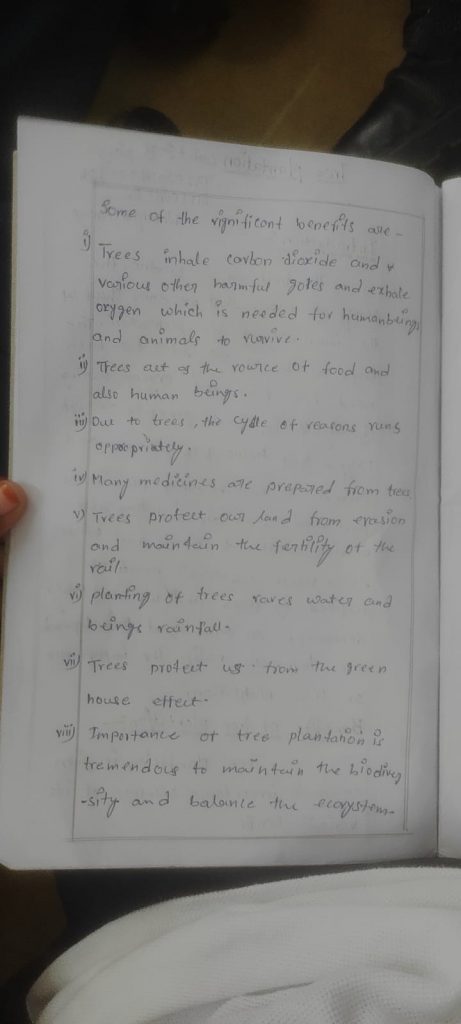 Some of the significant benefits are -
i) Trees inhale carbon dioxide and
various other harmful gases and exhale
oxygen which is needed for humanbeings
and animals to survive.
ii) Trees act as the source of food and
also human beings.
iii) Due to trees, the cycle of seasons runs
appropriately.
iv) Many medicines are prepared from trees
v) Trees protect our land from erosion
and maintain the fertility of the
soil.
vi) planting of trees saves water and
beings rainfall.
vii) Trees protect us from the green
house effect.
viii) Importance of tree plantation is
tremendous to maintain the biodiver
-sity and balance the ecosystem.